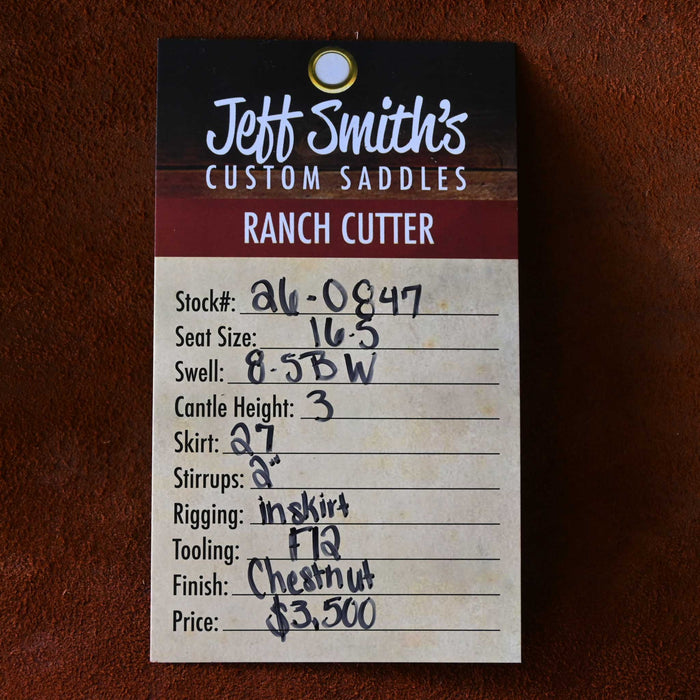 Jeff Smith's
CUSTOM SADDLES
RANCH CUTTER
Stock#: 26-0847
Seat Size: 16.5
Swell: 8.5BW
Cantle Height: 3
Skirt: 27
Stirrups: 2"
Rigging: inskirt
Tooling: F12
Finish: Chestnut
Price: $3,500